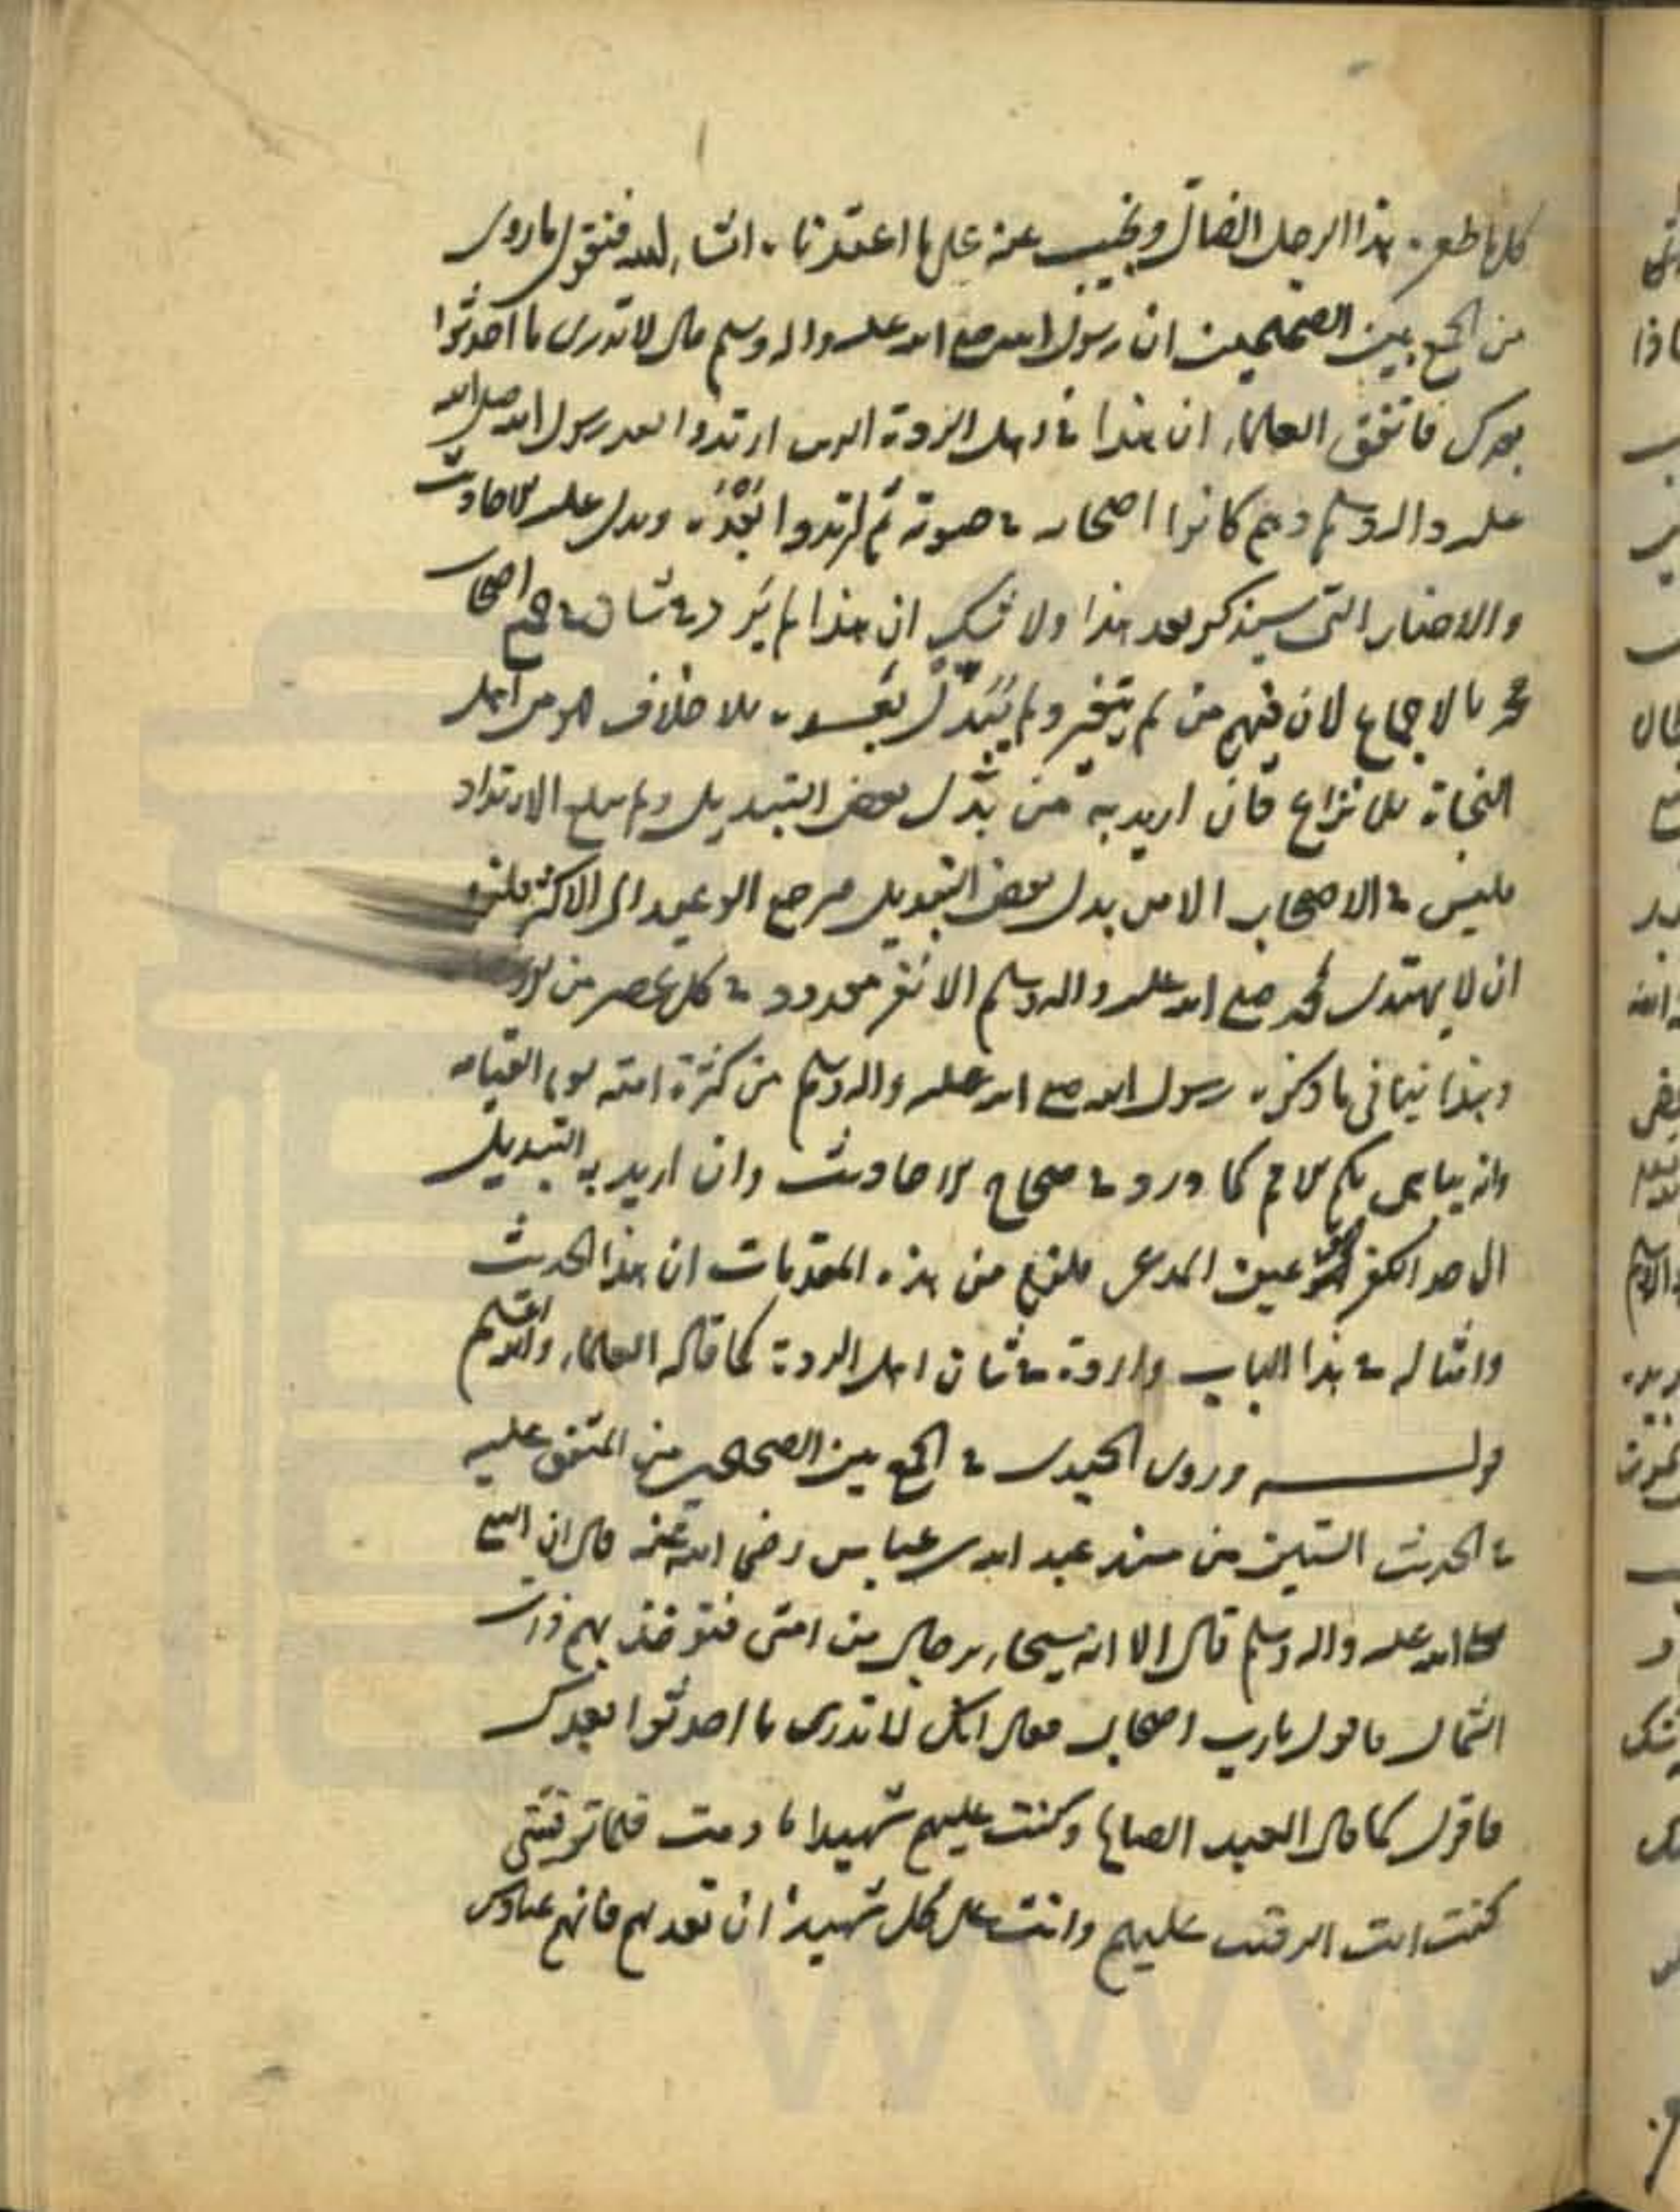 هذا الرجل الضال ونجيب عنه على ما اعتقدنا ان شاء الله فنقول ما روى
من الجمع بين الصحيحين ان رسول الله صلى الله عليه واله وسلم قال لا تدرى ما احدثوا
بعدك فاتفق العلماء ان هذا فى اهل الردة الذين ارتدوا بعد رسول الله صلى الله
عليه واله وسلم وهم كانوا اصحابه فى حيوته ثم ارتدوا بعده ويدل عليه الاحاديث
والاخبار التى سيذكر بعد هذا ولا شك ان هذا لم يرد فى شان جميع اصحاب
محمد بالاجماع لان فيهم من لم يتغير ولم يتبدل بعده بلا خلاف من اهل
النجاة بلا نزاع فان اريد به من بدل بعض التبديل ولم يبلغ الارتداد
فليس فى الاصحاب الا من بدل بعض التبديل فيرجع الوعيد الى الاكثر فلزم
ان لا يهتدى محمد صلى الله عليه واله وسلم الا نفر معدود فى كل عصر من
وهذا ينافى ما ذكره رسول الله صلى الله عليه واله وسلم من كثرة امته يوم القيامة
وانه يباهى بكم الامم كما ورد فى صحاح الاحاديث وان اريد به التبديل
الى حد الكفر فهو عين المدعى فلزم من هذه المقدمات ان هذا الحديث
وامثاله فى هذا الباب واردة فى شان اهل الردة كما قاله العلماء والله اعلم
قوله وروى الحميدى فى الجمع بين الصحيحين من المتفق عليه
فى الحديث الستين من مسند عبد الله بن عباس رضى الله عنه قال ان النبى
صلى الله عليه واله وسلم قال الا انه سيجاء برجال من امتى فتؤخذ بهم ذات
الشمال فاقول يارب اصحابى فقال انك لا تدرى ما احدثوا بعدك
فاقول كما قال العبد الصالح وكنت عليهم شهيدا ما دمت فلما توفيتنى
كنت انت الرقيب عليهم وانت على كل شهيد ان تعذبهم فانهم عبادك